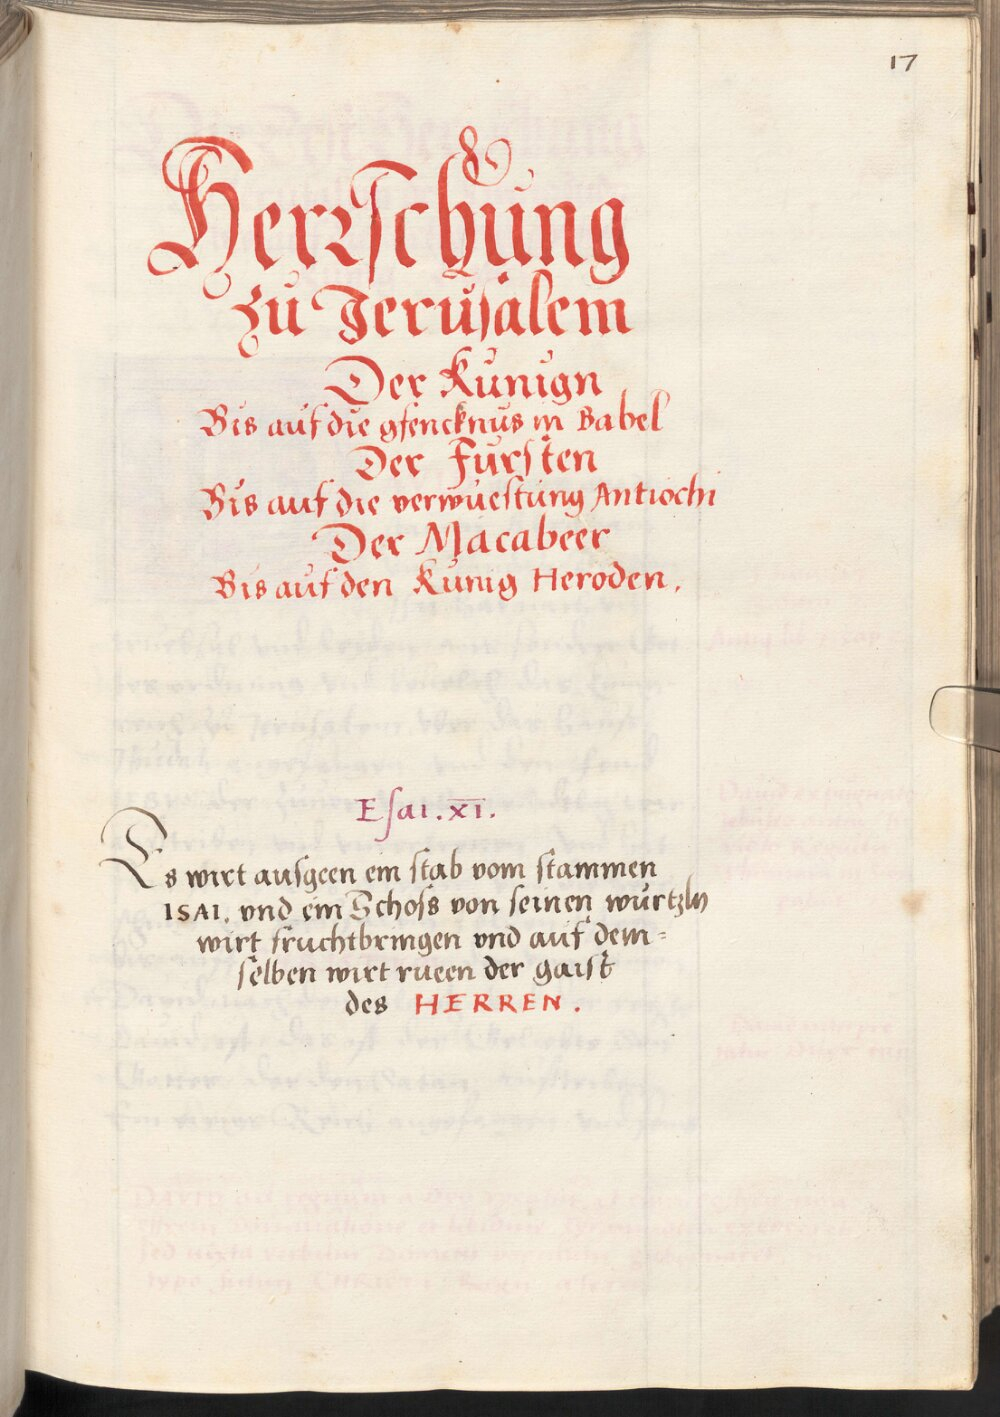 17
Herrschung
zu Jerusalem
Der Kunign
Bis auf die gfencknus in Babel
Der Fursten
Bis auf die verwuestung Antiochi
Der Macabeer
Bis auf den Kunig Heroden.
Esai. XI.
Es wirt ausgeen ein stab vom stammen
ISAI. vnd ein Schoss von seinen wurtzln
wirt fruchtbringen vnd auf dem=
selben wirt rueen der gaist
des HERREN.